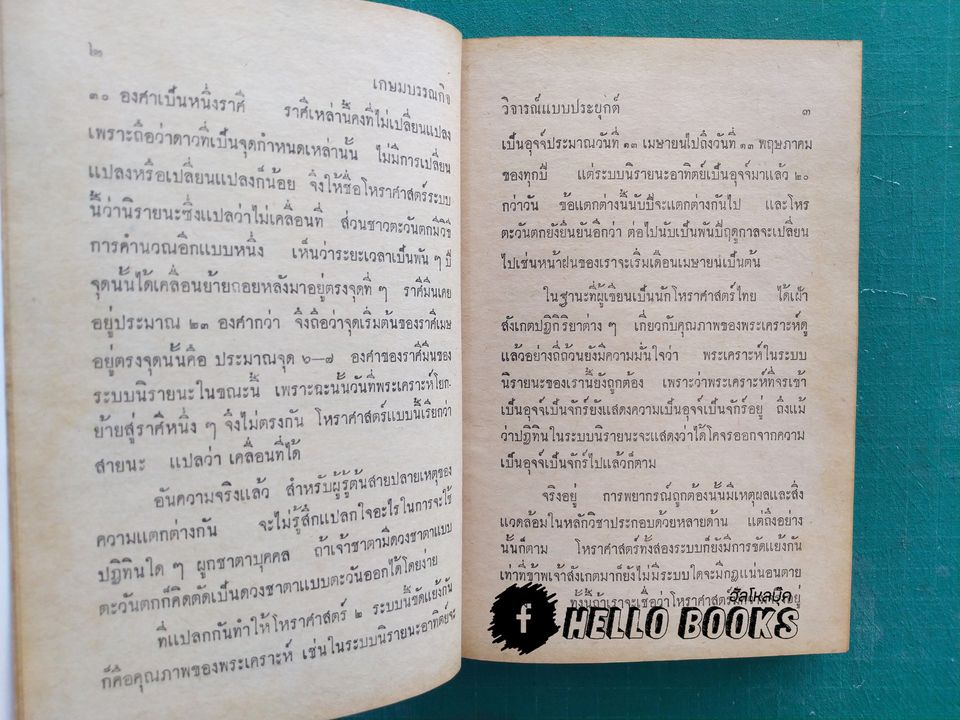 ๒
เกษมบรรณกิจ
๓๐ องศาเป็นหนึ่งราศี ราศีเหล่านี้คงที่ไม่เปลี่ยนแปลง
เพราะถือว่าดาวที่เป็นจุดกำหนดเหล่านั้น ไม่มีการเปลี่ยน
แปลงหรือเปลี่ยนแปลงก็น้อย จึงให้ชื่อโหราศาสตร์ระบบ
นี้ว่านิรายนะซึ่งแปลว่าไม่เคลื่อนที่ ส่วนชาวตะวันตกมีวิธี
การคำนวณอีกแบบหนึ่ง เห็นว่าระยะเวลาเป็นพัน ๆ ปี
จุดนั้นได้เคลื่อนย้ายถอยหลังมาอยู่ตรงจุดที่ ๆ ราศีมีนเคย
อยู่ประมาณ ๒๓ องศากว่า จึงถือว่าจุดเริ่มต้นของราศีเมษ
อยู่ตรงจุดนั้นคือ ประมาณจุด ๖—๗ องศาของราศีมีนของ
ระบบนิรายนะในขณะนี้ เพราะฉะนั้นวันที่พระเคราะห์โยก-
ย้ายสู่ราศีหนึ่ง ๆ จึงไม่ตรงกัน โหราศาสตร์แบบนี้เรียกว่า
สายนะ แปลว่า เคลื่อนที่ได้
อันความจริงแล้ว สำหรับผู้รู้ต้นสายปลายเหตุของ
ความแตกต่างกัน จะไม่รู้สึกแปลกใจอะไรในการจะใช้
ปฏิทินใด ๆ ผูกชาตาบุคคล ถ้าเจ้าชาตามีดวงชาตาแบบ
ตะวันตกก็คิดตัดเป็นดวงชาตาแบบตะวันออกได้โดยง่าย
ที่แปลกกันทำให้โหราศาสตร์ ๒ ระบบนี้ขัดแย้งกัน
ก็คือคุณภาพของพระเคราะห์ เช่นในระบบนิรายนะอาทิตย์จะ
วิจารณ์แบบประยุกต์ ๓
เป็นอุจจ์ประมาณวันที่ ๑๓ เมษายนไปถึงวันที่ ๑๓ พฤษภาคม
ของทุกปี แต่ระบบนิรายนะอาทิตย์เป็นอุจจ์มาแล้ว ๒๐
กว่าวัน ข้อแตกต่างนี้นับปีจะแตกต่างกันไป และโหร
ตะวันตกยังยืนยันอีกว่า ต่อไปนับเป็นพันปีฤดูกาลจะเปลี่ยน
ไปเช่นหน้าฝนของเราจะเริ่มเดือนเมษายนเป็นต้น
ในฐานะที่ผู้เขียนเป็นนักโหราศาสตร์ไทย ได้เฝ้า
สังเกตปฏิกิริยาต่าง ๆ เกี่ยวกับคุณภาพของพระเคราะห์ดู
แล้วอย่างถี่ถ้วนยังมีความมั่นใจว่า พระเคราะห์ในระบบ
นิรายนะของเรานี้ยังถูกต้อง เพราะว่าพระเคราะห์ที่จรเข้า
เป็นอุจจ์เป็นจักร์ยังแสดงความเป็นอุจจ์เป็นจักร์อยู่ ถึงแม้
ว่าปฏิทินในระบบนิรายนะจะแสดงว่าได้โคจรออกจากความ
เป็นอุจจ์เป็นจักร์ไปแล้วก็ตาม
จริงอยู่ การพยากรณ์ถูกต้องนั้นมีเหตุผลและสิ่ง
แวดล้อมในหลักวิชาประกอบด้วยหลายด้าน แต่ถึงอย่าง
นั้นก็ตาม โหราศาสตร์ทั้งสองระบบก็ยังมีการขัดแย้งกัน
เท่าที่ข้าพเจ้าสังเกตมาก็ยังไม่มีระบบใดจะมีกฎแน่นอนตาย
ทั้งนี้ถ้าเราจะเชื่อว่าโหราศาสตร์
อยู่
ฮัลโหลบุ๊ค
f HELLO BOOKS